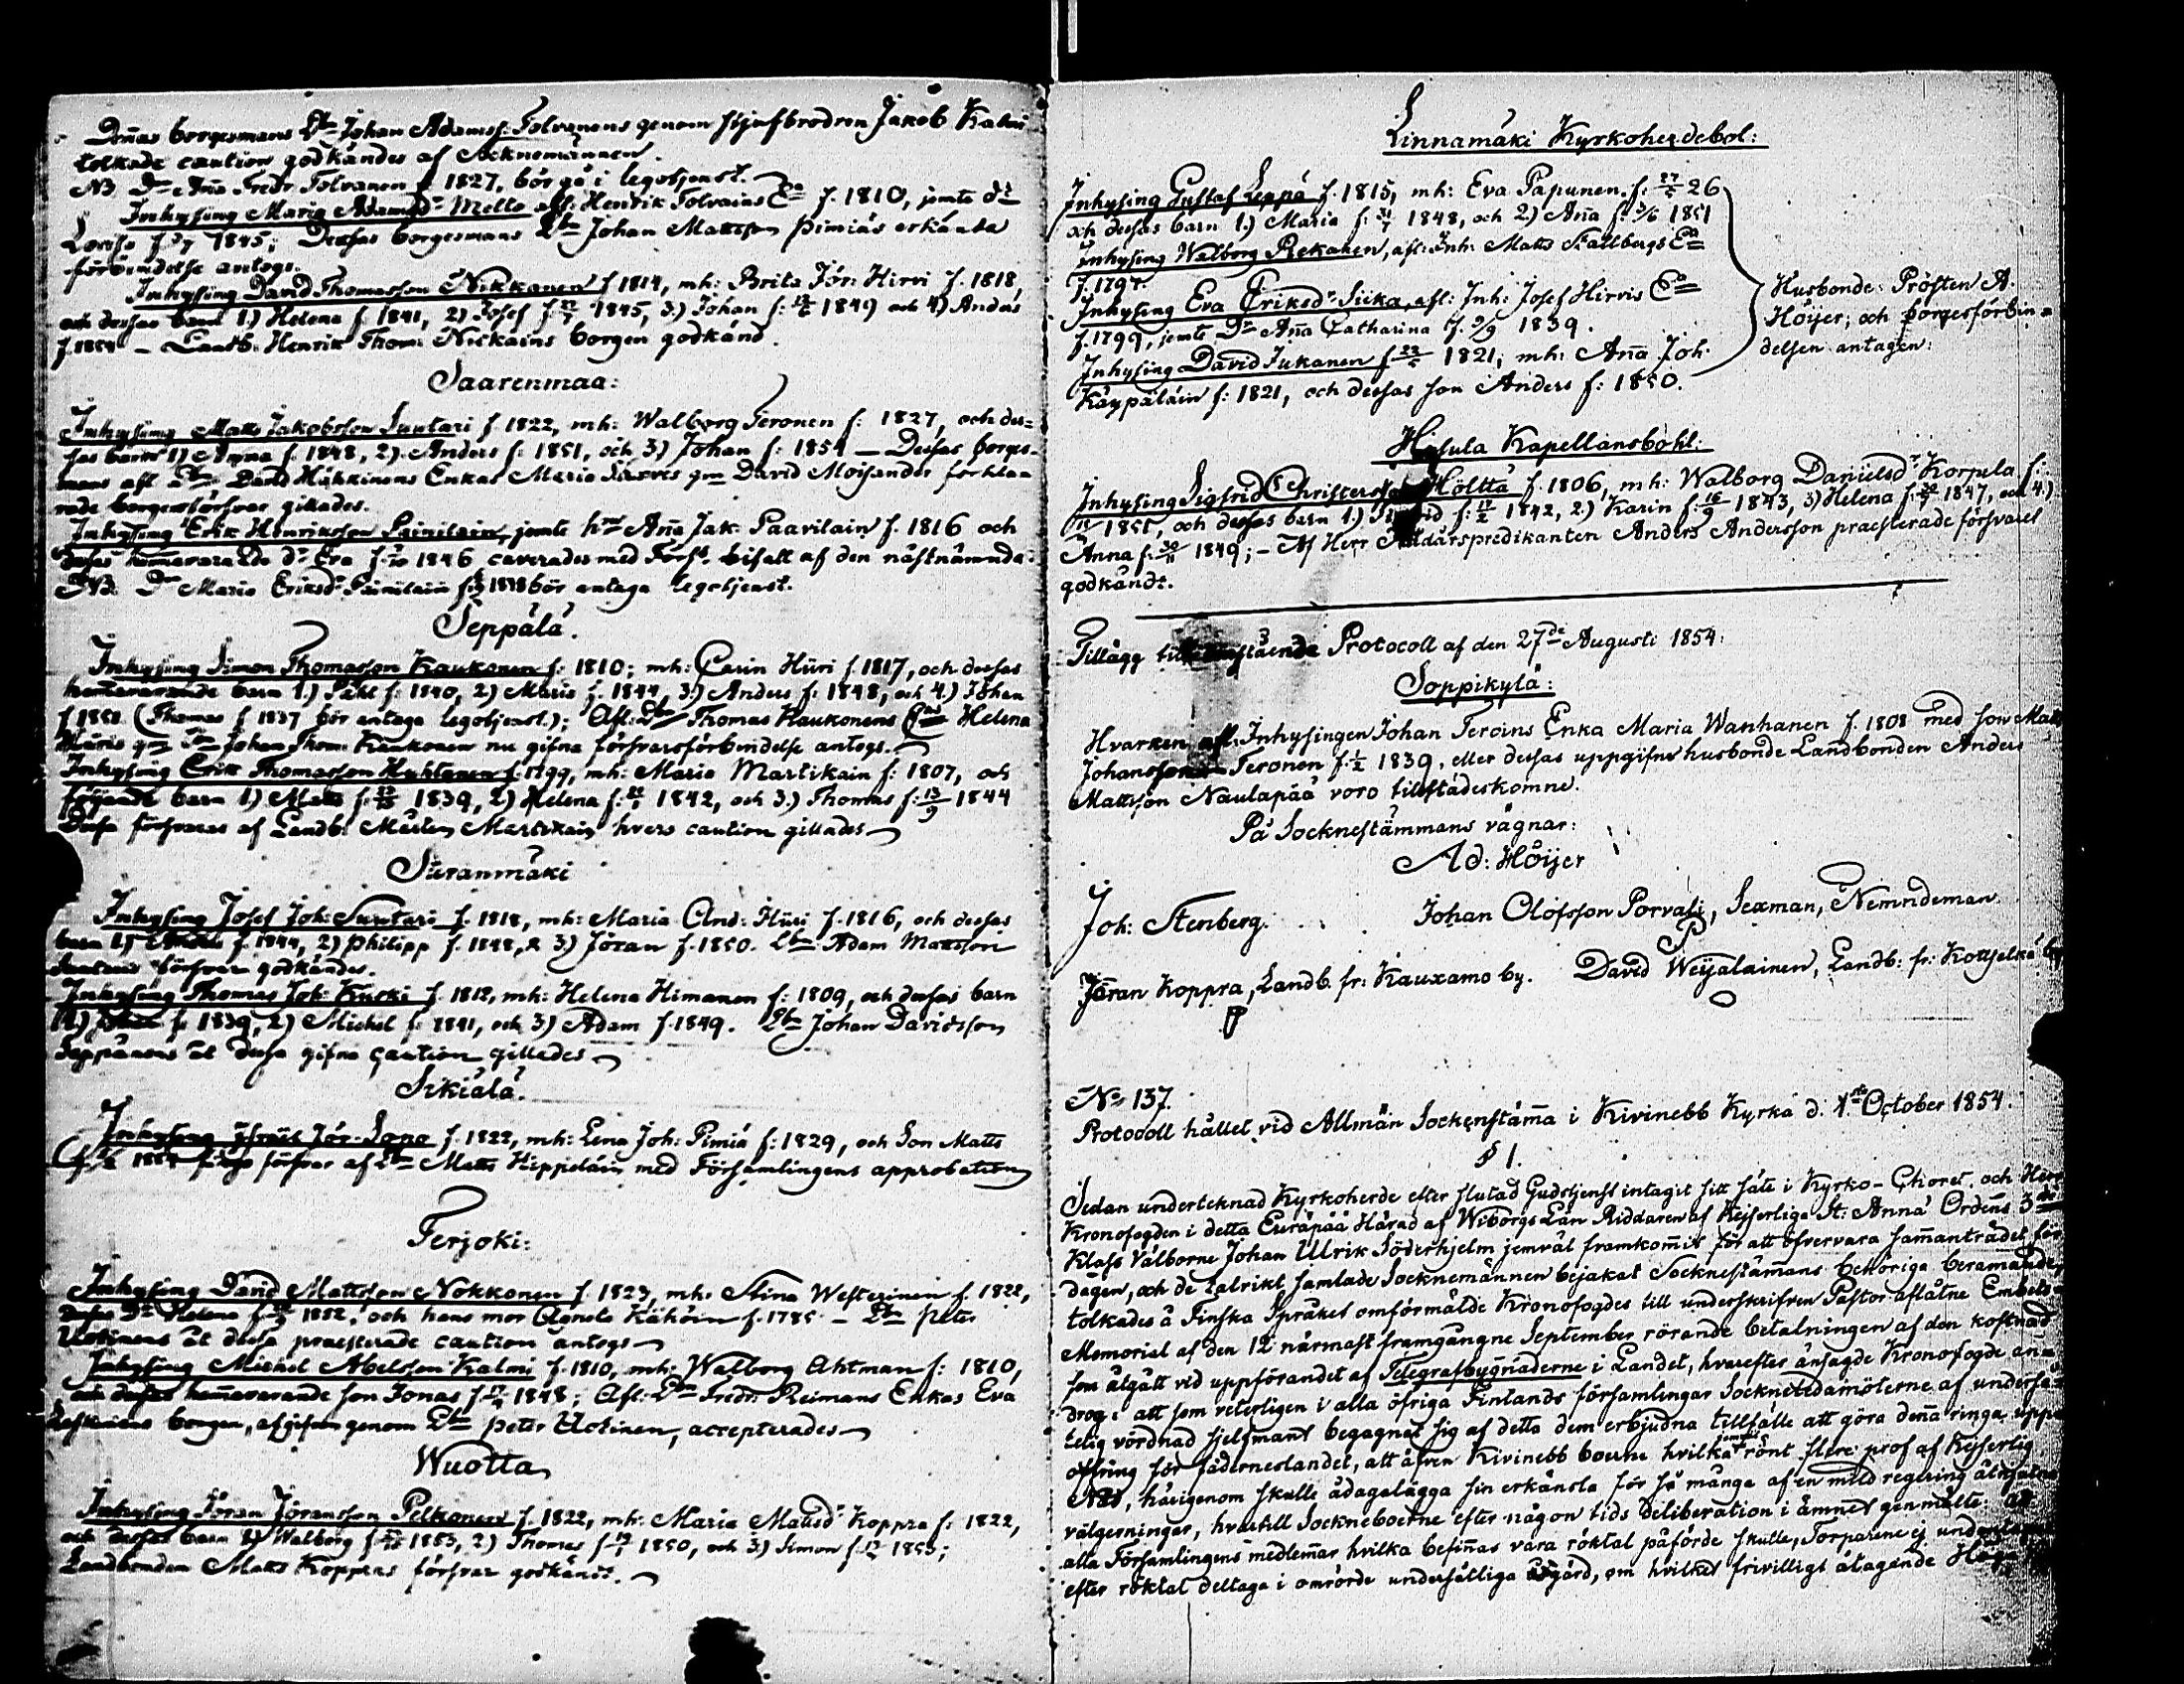 Dennas borgesmans Lbn Johan Adamss: Tolvanens genom styfbrodren Jakob Kalmi
tolkade caution godkändes af Socknemännen.
NB. Dr Anna Fredr: Tolvanen f. 1827, bör gå i legotjenst.
Inhysing Maria Adamsdr Mello afl: Henrik Tolvains Ea f. 1810, jemte dr
Lovisa f. 1845; Dessas borgesmans Lbn Johan Mattsson Pimiäs erkända
förbindelse antogs.
Inhysing David Thomasson Nikkanen f 1814, mh: Brita Jör: Hirvi f. 1818,
och dessas barn 1.) Helena f. 1841, 2) Josef f: 1845, 3.) Johan f: 1849 och 4) Anders
f. 1854 – Landb: Henrik Thom: Nickains borgen godkänd.
Saarenmaa:
Inhysing Matts Jakobsson Suntari f 1822, mh: Walborg Teronen f: 1827, och des=
sas barn 1) Anna f. 1848, 2). Anders f: 1851, och 3) Johan f: 1854 — Dessas borges-
mans afl Lbn David Häkkinens Enkas Maria gm David Moisander förkla=
rade borgensförsvar gillades.
Inhysing Erik Henriksson Painilain, jemte hru Anna Jak: Paavilain f. 1816 och
dessas hemmavarande dr Eva f: 1846 caverades med Förs: bifall af den nästnämnda.
NB. Dr Maria Eriksdr Painilain f: 1838 bör antaga legotjenst.
Seppälä.
Inhysing Simon Thomasson Kaukonen f: 1810; mh: Carin Hüri f. 1817, och dessas
hemmavarande barn 1.) Påhl f: 1840, 2) Maria f. 1844, 3.) Anders f: 1848, och 4.) Johan
f 1851. (Thomas f 1837 bör antaga legotjenst.); Afl: Lbn Thomas Kaukonens Eas Helena
Hüris gm Johan Thom: Kaukonen nu gifna försvarsförbindelse antogs.
Inhysing Erik Thomasson Huhtanen f. 1799, mh: Maria Martikain f: 1807, och
följande barn 1) Matts f: 1839, 2) Helena f: 1842, och 3.) Thomas f: 13/9 1844
Dessa försvaras af Landb: Mårten Martikain hvars caution gillades
Siiranmäki
Inhysing Josef Joh: Suntari f. 1818, mh: Maria And: Hüri f. 1816, och dessas
barn 1.) f. 1844, 2) Philipp f. 1848, & 3) Jöran f. 1850. Lbn Adam Mattsson
Suntaris försvar godkändes.
Inhysing Thomas Joh: Kurki f. 1812, mh: Helena Himanen f: 1809, och dessas barn
1.) Johan f: 1839, 2) Michel f: 1841, och 3) Adam f. 1849. Lbn Johan Davidsson
Seppänens åt dessa gifna caution gillades
Sikiälä.
Inhysing Israel Jör: Sopo f. 1822, mh: Lena Joh: Pimiä f: 1829, och Son Matts
f. 1854 försvar af Lbn Matts Hippeläin med Församlingens approbation
Terjoki:
Inhysing David Mattsson Nokkonen f. 1823, mh: Stina Westerinen f. 1822,
dessas Dr Helena f. 1852, och hans mor Agneta Kähöin f. 1785 – Lbn Peter
Uotinens åt dessa praesterade caution antogs
Inhysing Michel Abelsson Kalmi f. 1810, mh: Walborg Ahtman f: 1810,
och dessas hemmavarande son Jonas f 1848; Afl: Lbn Fredr: Reimans Enkas Eva
borgen, afgifven genom Lbn Peter Uotinen, accepterades
Wuotta
Inhysing Jöran Jöransson Pelkonen f. 1822, mh: Maria Mattsdr Koppra f: 1822,
och dessas barn 1) Walborg f 1853, 2) Thomas f 1850, och 3.) Simon f. 1853;
Landbonden Matts Koppras försvar godkändt.
Linnamäki Kyrkoherdebol:
Inhysing Gustaf Leppä f. 1815, mh: Eva Papunen f: 27/5 26
och dessas barn 1.) Maria f: 31/7 1848, och 2) Anna f: 3/6 1851
Inhysing Walborg Rekanen, afl: Inh: Matts Stållbergs Ea
f. 1794.
Inhysing Eva Eriksdr Siika, afl: Inh: Josef Hirvis Ea
f. 1799, jemte Dr Anna Catharina f. 9/9 1839.
Inhysing David Jukanen f 23/5 1821; mh: Anna Joh:
Käypäläin f: 1821, och dessas son Anders f: 1850.
Husbonde: Prosten A.
Höijer; och borgesförbin=
delsen antagen:
Hasula Kapellansbohl:
Inhysing Sigfrid Christersson Höltta f. 1806, mh: Walborg Danielsdr Korpela f:
1815, och dessas barn 1.) Sigfrid f: 17/2 1842, 2.) Karin f: 16/9 1843, 3) Helena f: 1847, och 4.)
Anna f: 30/11 1849; – Af Herr Adj: predikanten Anders Andersson praesterade försvaret
godkändt.
Tillägg till Protocoll af den 27de Augusti 1854:
Soppikylä:
Hvarken afl. Inhysingen Johan Teroins Enka Maria Wanhanen f. 1808 med son Matts
Johansson Teronen f. 1/2 1839, eller dessas uppgifne husbonde Landbonden Anders
Mattsson Naulapää voro tillstädeskomne.
På Socknestämmans vägnar:
Ad: Höijer
Joh: Stenberg.
Johan Olofsson Porvali, Sexman, Nemndeman
Jöran Koppra, Landb. fr: Kauxamo by.
David Weijalainen, Landb: fr: Kottselkä by
No 137.
Protocoll hållet vid Allmän Sockenstämma i Kivinebb Kyrka d: 1sta October 1854.
§ 1.
Sedan underteknad Kyrkoherde efter slutad Gudstjenst intagit sitt säte i Kyrko-Choret, och Herr
Kronofogden i detta Euräpää Härad af Wiborgs Län Riddaren af Kejserliga St: Anna Ordens 3dje
Klass Välborne Johan Ulrik Söderhjelm jemväl framkommit för att öfvervara sammanträdet för
dagen, och de talrikt samlade Socknemännen bejakat Socknestämmans behöriga beramande,
tolkades å Finska Språket omförmälde Kronofogdes till underskrifven Pastor aflåtne Embets
Memorial af den 12 närmast framgångne September rörande betalningen af den kostnad
som åtgått vid uppförandet af Telegrafbyggnaderne i Landet, hvarefter änsagde Kronofogde an=
drog: att som veterligen i alla öfriga Finlands församlingar Sockneledamöterne af underså=
telig vördnad sjelfmant begagnat sig af detta dem erbjudna tillfälle att göra denna ringa upp=
offring för fäderneslandet, att äfven Kivinebb boerne hvilka jemväl rönt flere prof af Kejserlig
Nåd, härigenom skulle ådagalägga sin erkänsla för så många af en mild regering åtnjutna
välgerningar, hvartill Sockneboerne efter någon tids deliberation i ämnet genmälte: att
alla Församlingens medlemmar hvilka befinnas vara röktal påförde skulle, Torparene ej undantagne
efter röktal deltaga i omrörde undersåtliga gärd, om hvilket frivilligt åtagande Höga